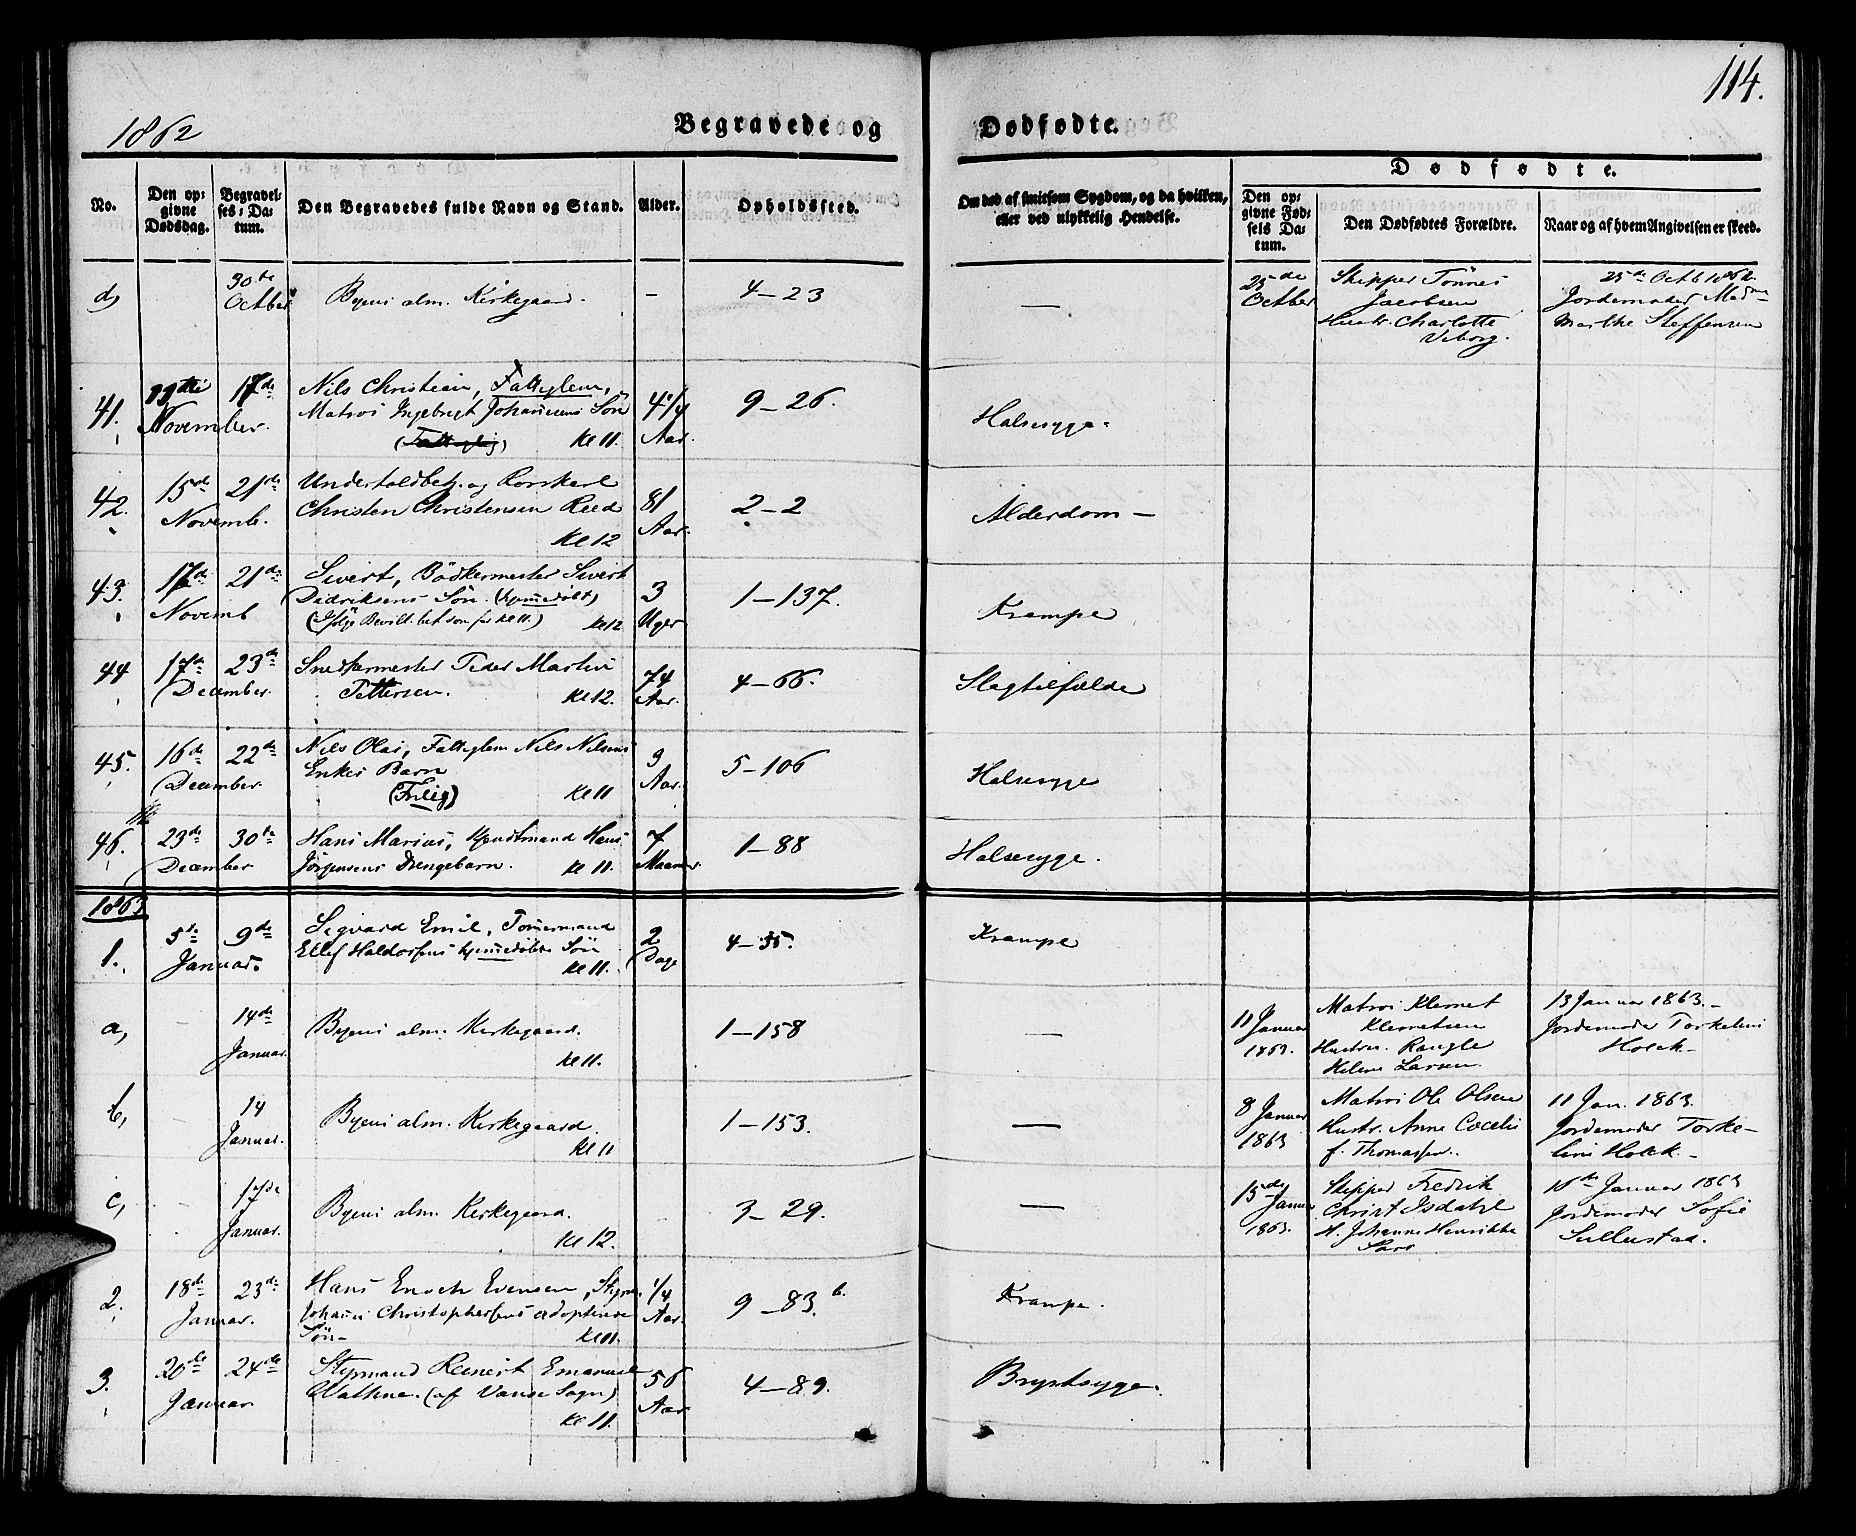 114.
1862 Begravede og Dødfødte.
Dødfødte.
No. Den opgivne Dødsdag. Begravelses-Datum. Den Begravedes fulde Navn og Stand. Alder. Opholdssted. Om død af smitsom Sygdom, og da hvilken, eller ved ulykkelig Hendelse. Den opgivne Fødsels Datum. Den Dødfødtes Forældre. Naar og af hvem Angivelsen er skeed.
d, 30te Octber Byens alm. Kirkegaard. – 4–23 — 25de Octber Skipper Tönnes 25de Octb 1862.
Jacobsen Jordemoder Mad
Hustr. Charlotte Marthe Steffensen
Viborg.
41. November 17de Nils Christian, Fattiglem, 4 1/4 Aar. 9–26. Halssyge.
Matros Ingebrigt Johannesens Søn
(Fattiglig) Kl 11.
42. 15de 21de Novemb. Underholdbetj. og Rorskarl 81 Aar. 2–2 Alderdom –
Christen Christensen Reed
Kl 12
43. 21de Novemb Sivert, Bödkermester Sivert 3 Uger 1–137. Krampe
Didriksens Sön. (hjemmedöbt)
(Ifölge Bevilt. bet som for Kl 11.) Kl 12
44 17de 23de December. Snedkermester Peder Martin 74 Aar. 4–66. Slagtilfælde
Pettersen. Kl 12.
45. 16de 22de December. Nils Olai, Fattiglem Nils Nilsens 3 Aar. 5–106 Halssyge
Enkes Barn
(Frilig) Kl 11
46. 23de 30te December Hans Marius, Hans 7 Maaner 1–88 Halssyge.
Jörgensens Drengebarn. Kl 11.
1863
1. 5te 9de Januar. Sigvard Emil, Tömmermand 2 Dage 4–35. Krampe
Ellef Haldorsens hjemmedöbte Sön
Kl 11.
a, – 14de Januar. Byens alm. Kirkegaard. 1–158 — 11 Januar 1863. Matros Klemet 13 Januar 1863. –
Klemetsen Jordemoder Torkeline
Kl 11. Hustru. Rangle Holck –
Helene Larsen.
b, – 14 Januar. Byens alm. Kirkegaard. 1–153. — 8 Januar 1863 Matros Ole Olsen 11 Jan. 1863.
Hustr. Anne Cecelie Jordemoder Torke-
Kl 11 f. Thomassen. line Holck. –
c, – 17de Januar. Byens alm. Kirkegaard. 3–29. — 15de Januar 1863. Skipper Fredrik 16de Januar 1863
Christ Isdahl Jordemoder Sofie
Kl 12. H. Johanne Henrikke Sellustad.
2. 18de 23de Januar. Hans Enoch Evensen, Styrm. 1/4 Aar. 9–83.b. Krampe.
Johannes Christophersens adopterede
Sön – Kl 11.
3. 20de 24de Januar Styrmand Reinert Emanuel 56 Aar 4–89. Brystsyge.
Wathne. (af Vanse Sogn)
Kl 11.